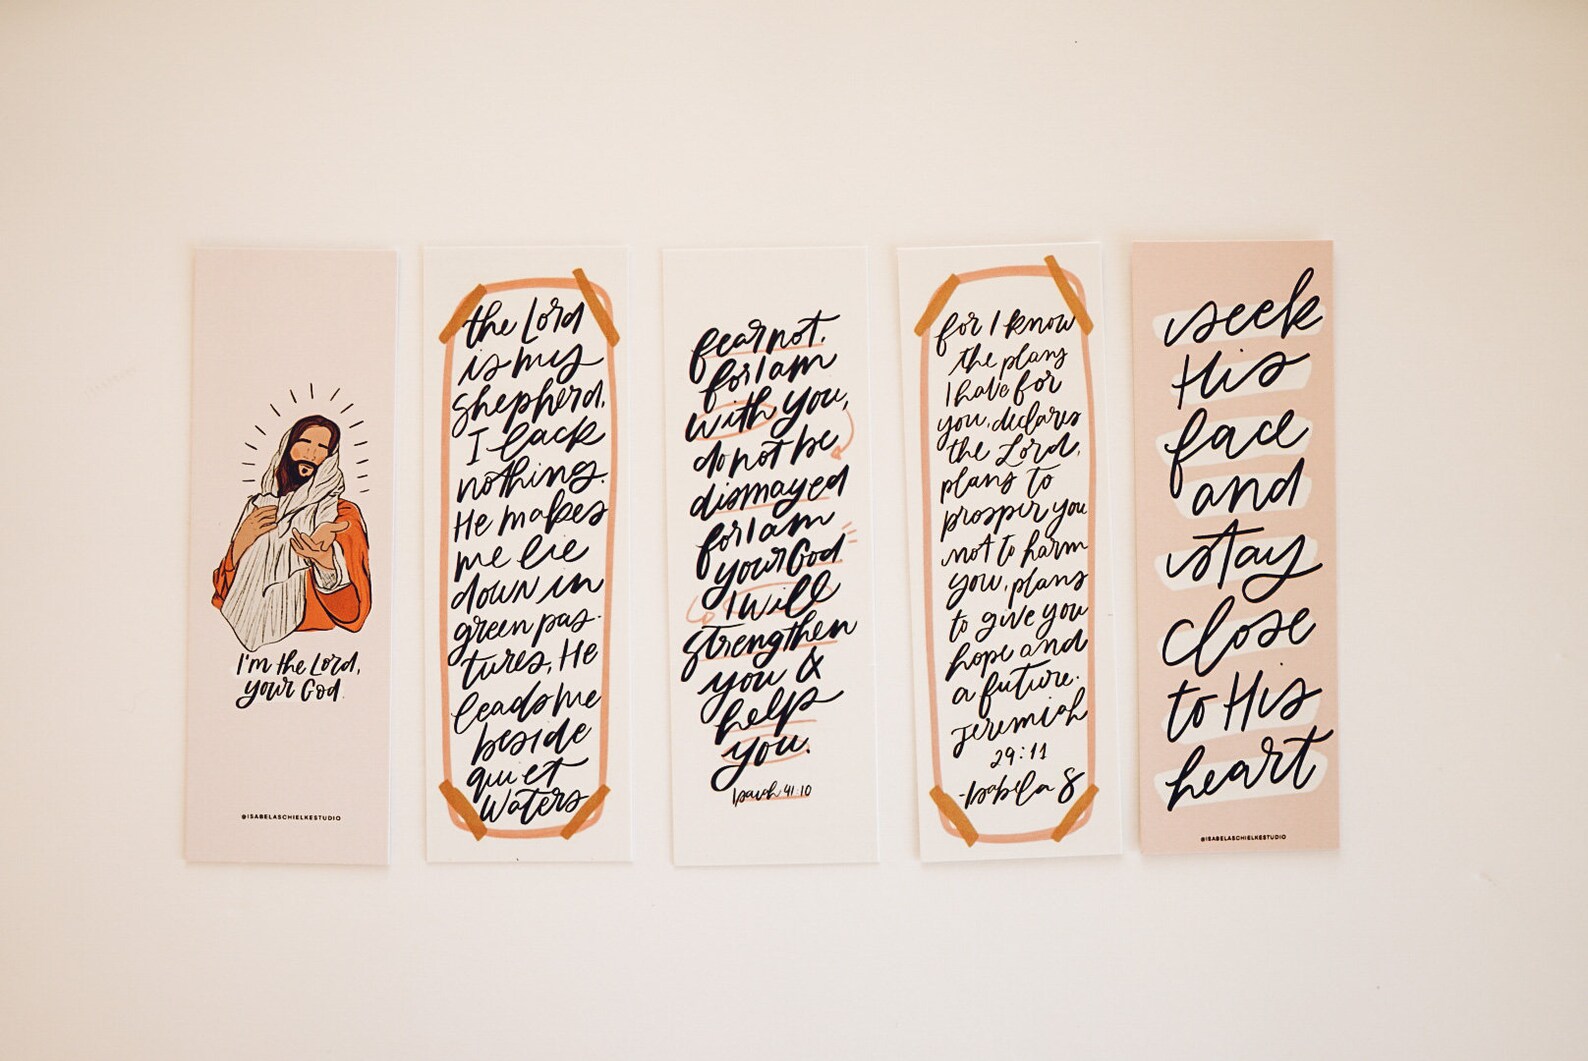 I'm the Lord,
your God.
@ISABELASCHIELKESTUDIO
the Lord
is my
shepherd,
I lack
nothing.
He makes
me lie
down in
green pas-
tures, He
leads me
beside
quiet
waters
fear not,
for I am
with you,
do not be
dismayed
for I am
your God
I will
strengthen
you &
help
you.
Isaiah 41:10
for I know
the plans
I have for
you, declares
the Lord,
plans to
prosper you
not to harm
you, plans
to give you
hope and
a future.
Jeremiah
29:11
-Isabela S
seek
His
face
and
stay
close
to His
heart
@ISABELASCHIELKESTUDIO